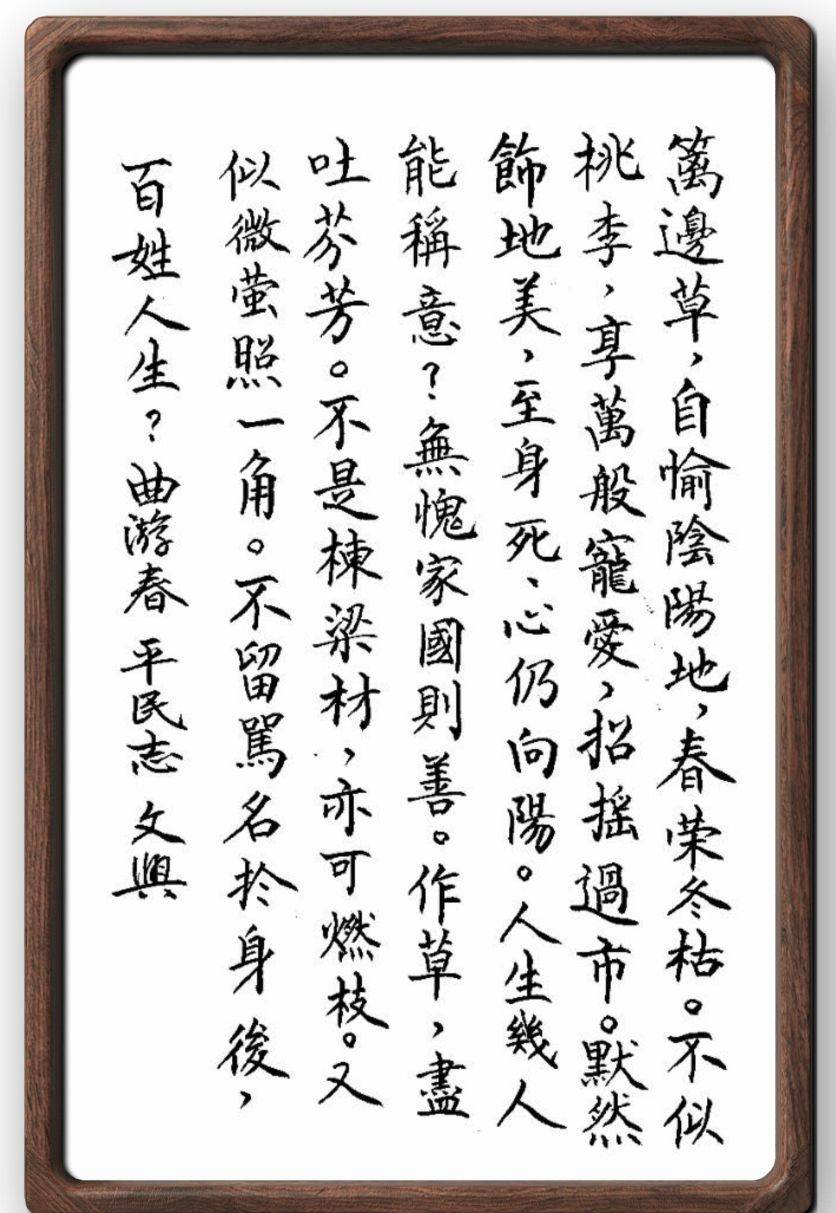 籬邊草，自愉陰陽地，春荣冬枯。不似
桃李，享萬般寵愛，招摇過市。默然
飾地美，至身死、心仍向陽。人生幾人
能稱意？無愧家國則善。作草，盡
吐芬芳。不是棟梁材，亦可燃枝。又
似微萤照一角。不留駡名於身後，
百姓人生？曲游春 平民志 文興